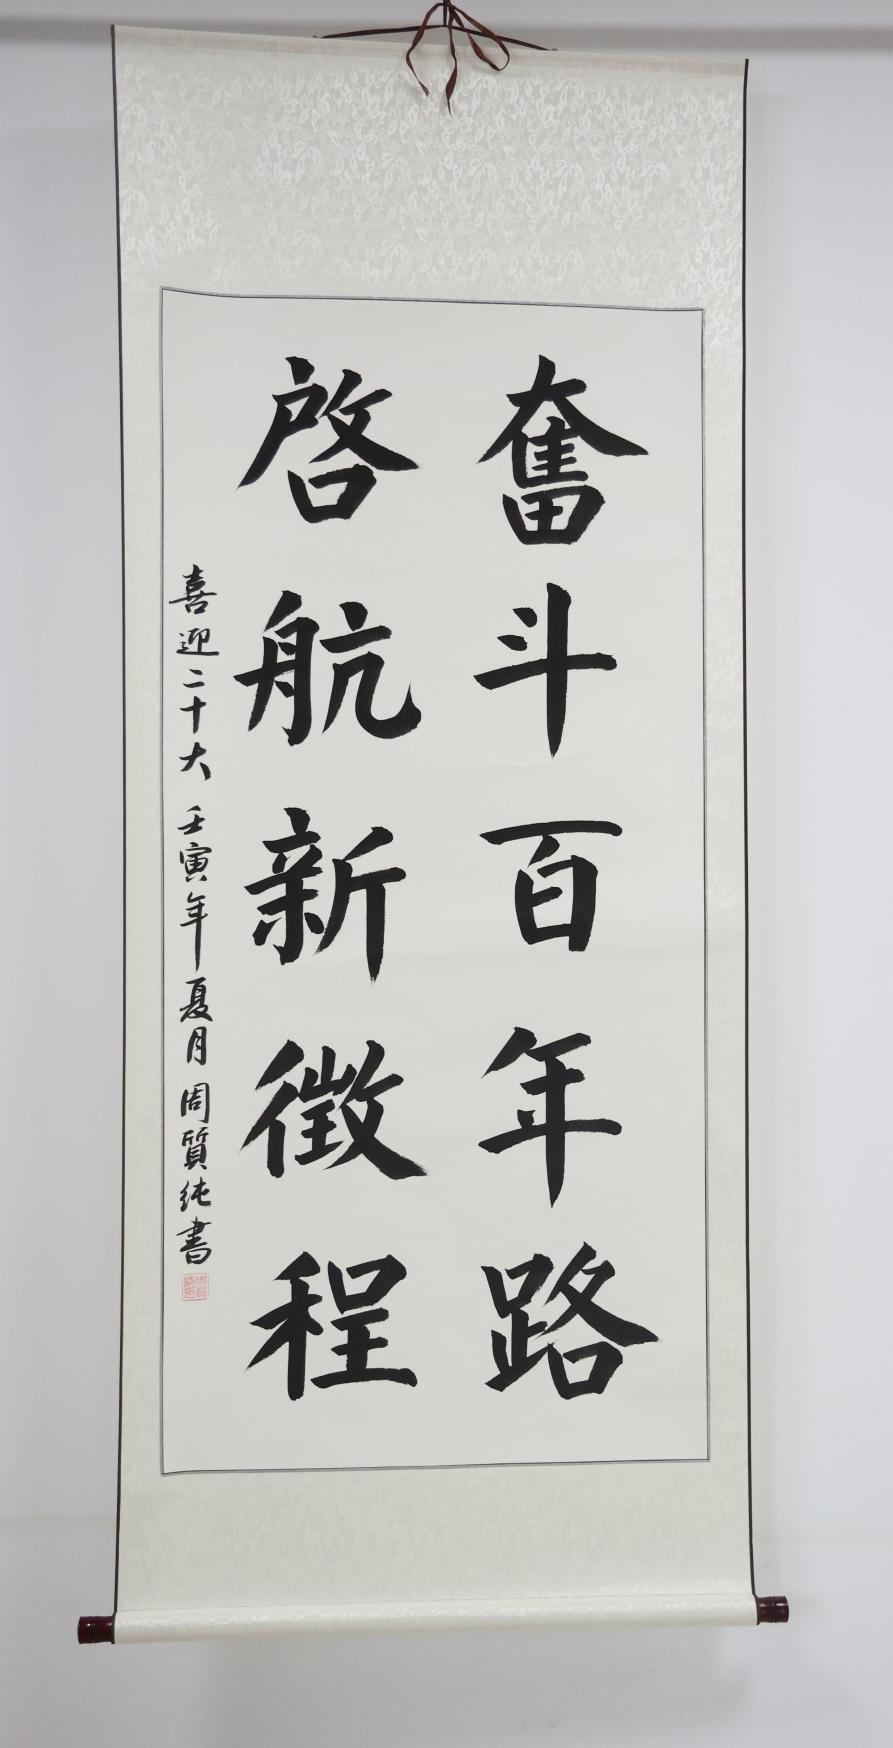 奮斗百年路
啓航新徵程
喜迎二十大 壬寅年夏月 周質純書